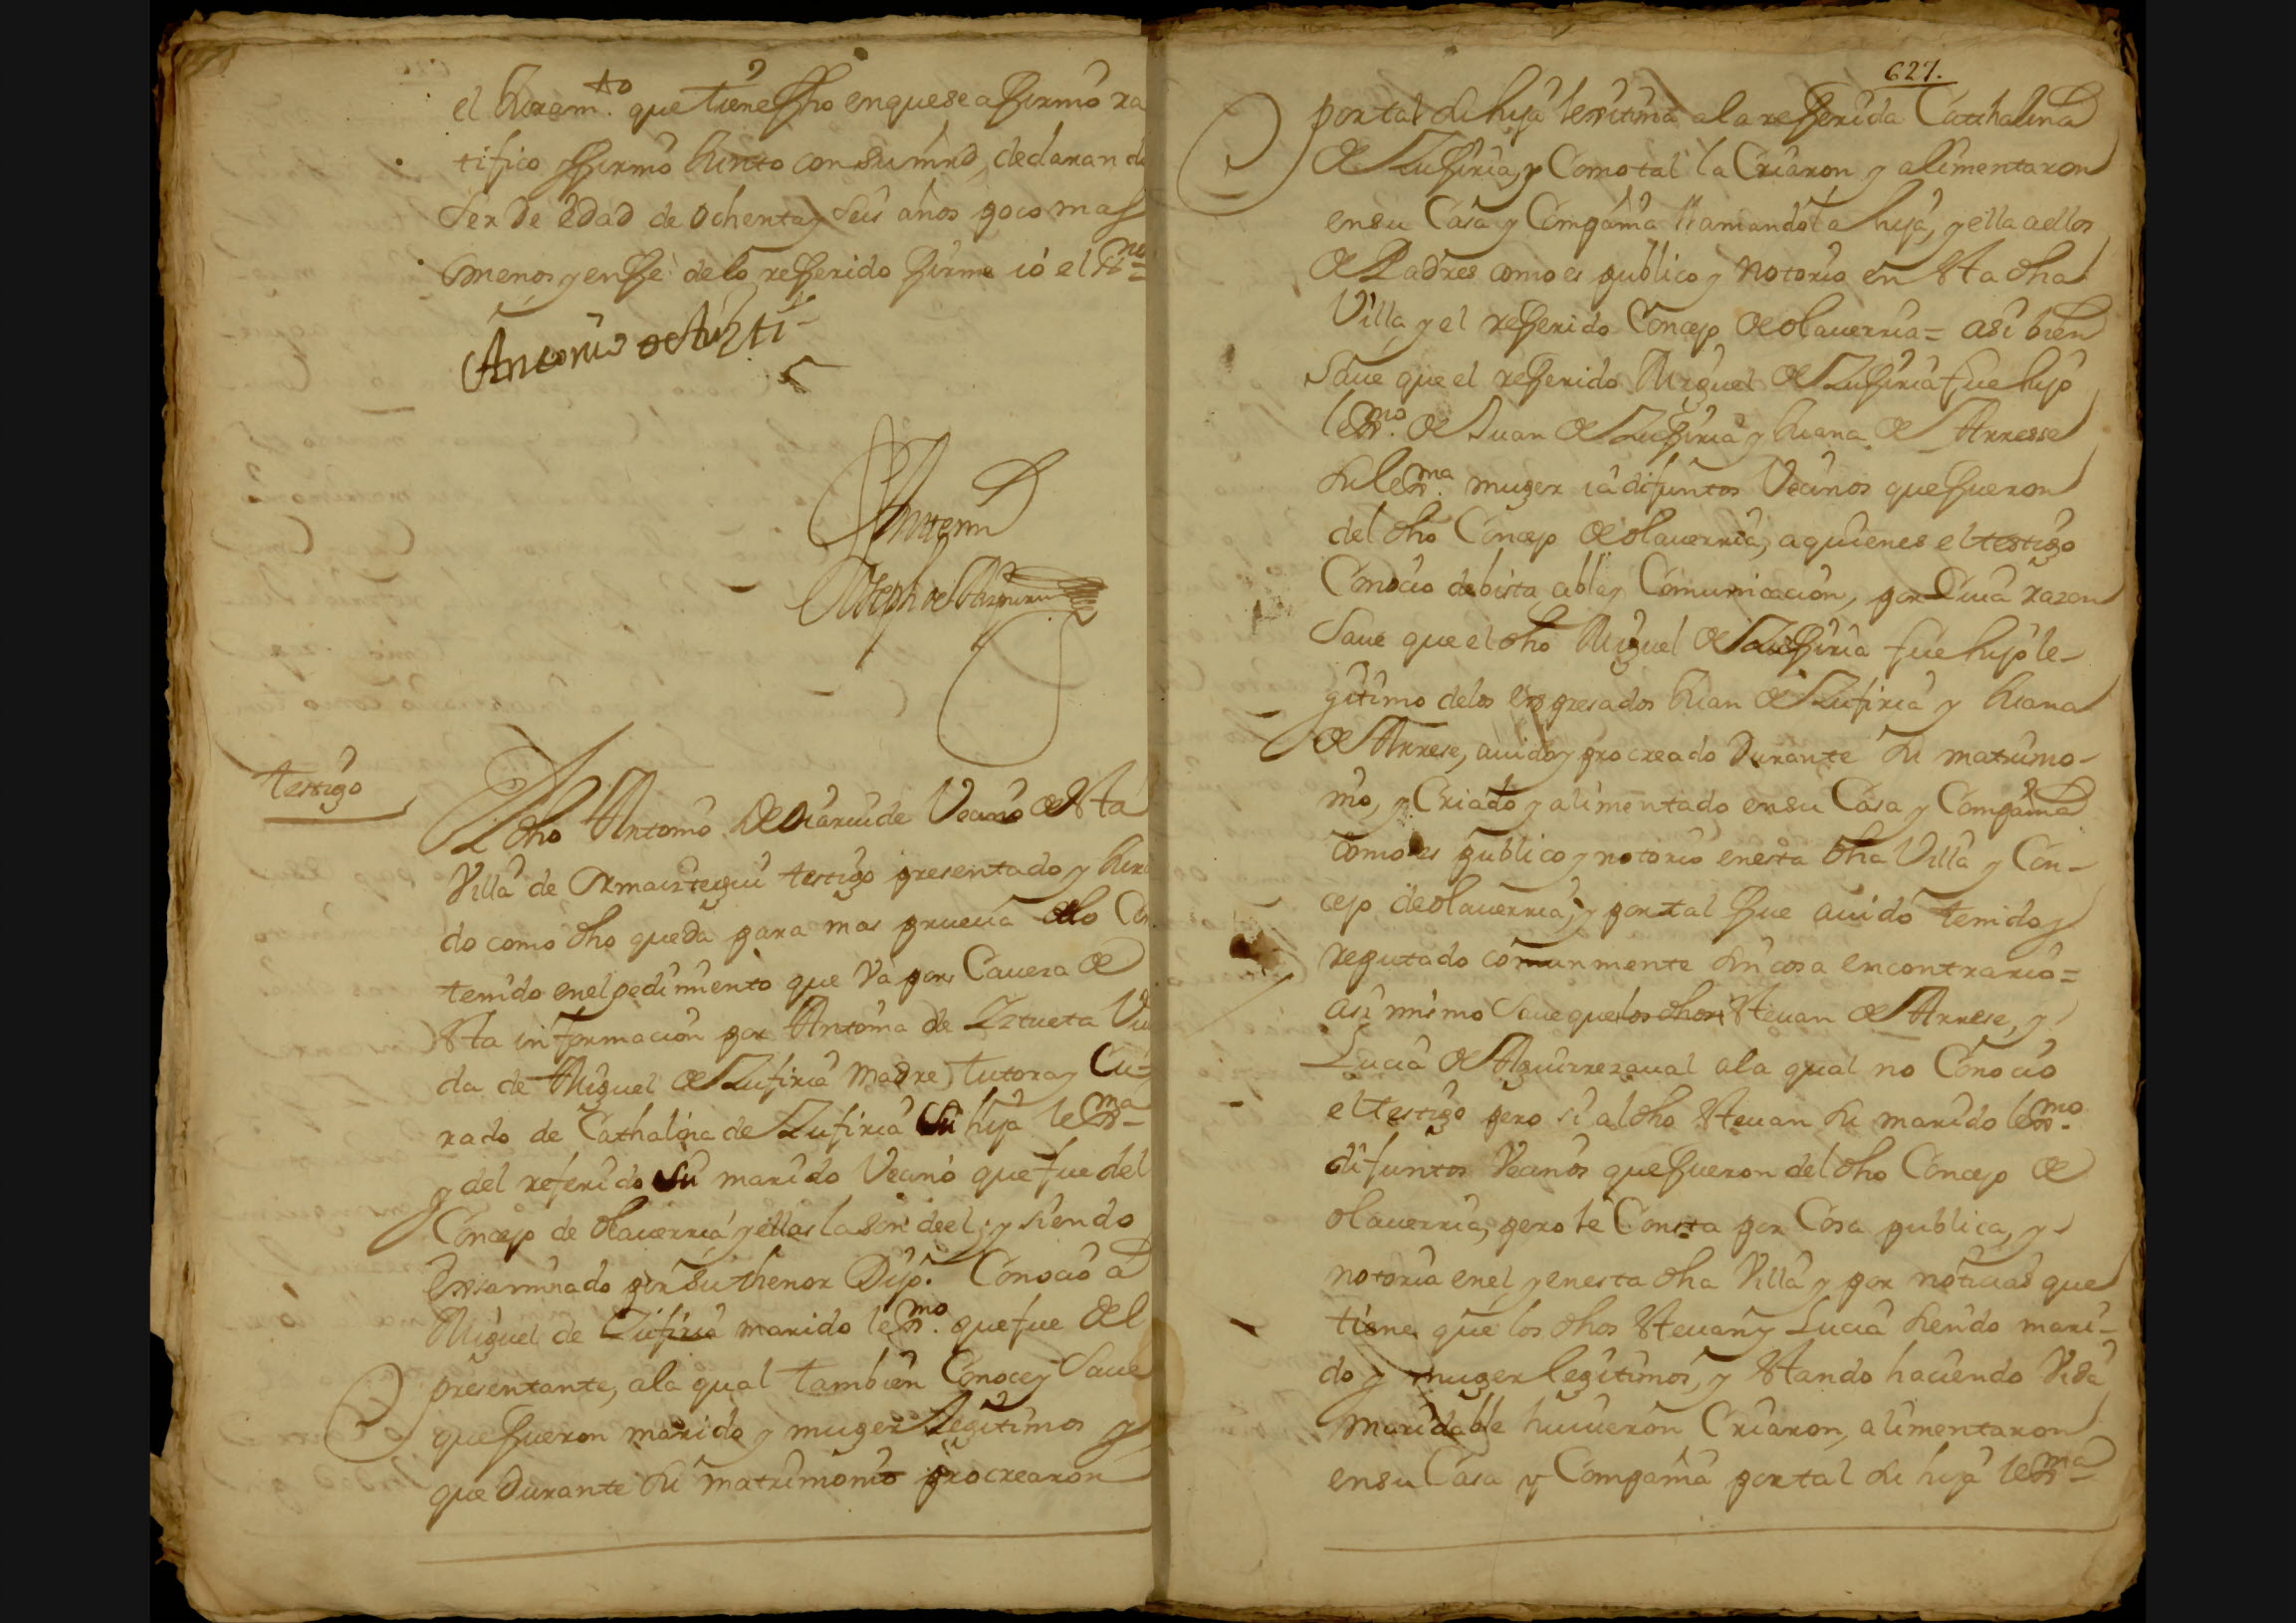 el Juram.to que tiene ffho en que se affirmó ra
tifico ffirmó Junto con su mrd, declarando
Ser De edad de ochenta y seis años poco mas
ò menos y en ffe de lo refferido firme ió el ss.no =
Antonio de
Ante mi
Joseph de
testigo
El dho Antonio de Oiarcuide Vecino de esta
Villa de Ormaiztegui testigo presentado y Jura
do como dho queda para mas prueua de lo Con
tenido en el pedimiento que Va por Cauera de
esta informacion por Antonia de Yztueta Viu
da de Miguel de Zufiria Madre, tutora y Cu-
rado de Cathalina de Zufiria su hija lex.ma
y del referido su marido Vecino que fue del
Concejo de olauerria y ellas la son de el, y siendo
Exsaminado por su thenor Dijo. Conocio à
Miguel de Zufiria marido lex.mo que fue de l
presentante, a la qual tambien Conoce y Saue
que fueron marido y muger Legitimos y
que Durante su matrimonio procrearon
627.
por tal su hija lexitima a la refferida Cathalina
de Zufiria, y Como tal la Criaron y alimentaron
en su Casa y Compañia llamandola hija, y ella a ellos
de Padres como es publico y Notorio en esta dha
Villa, y el refferido Concejo de olauerria = asi bien
Saue que el refferido Miguel de Zufiria fue hijo
lex.mo de Juan de Zufiria y Juana de Arresse
su lex.ma muger ia difuntos Vecinos que fueron
del dho Concejo de olauerria, a quienes el testigo
Conocio de bista abla y Comunicacion, por Cuia razon
Saue que el dho Miguel de Zufiria fue hijo le-
gitimo de los expresados Juan de Zufiria y Juana
de Arrese, auido y procreado Durante su matrimo-
nio, y Criado y alimentado en su Casa y Compañia
como es publico y notorio en esta dha Villa y Con-
cejo de olauerria, y por tal fue auido tenido y
reputado comunmente sin cosa en contrario =
asi mismo Saue que los dhos esteuan de Arrese, y
Lucia de Aguirrezaual a la qual no Conocio
el testigo pero si al dho esteuan su marido lex.mo
difuntos Vecinos que fueron del dho Concejo de
olauerria, pero le Consta por Cosa publica, y
notoria en el y en esta dha Villa y por noticias que
tiene que los dhos esteuan y Lucia siendo mari-
do y muger legitimos, y estando haciendo Vida
maridable huuieron Criaron, alimentaron
en su Casa y Compañia por tal su hija lex.ma